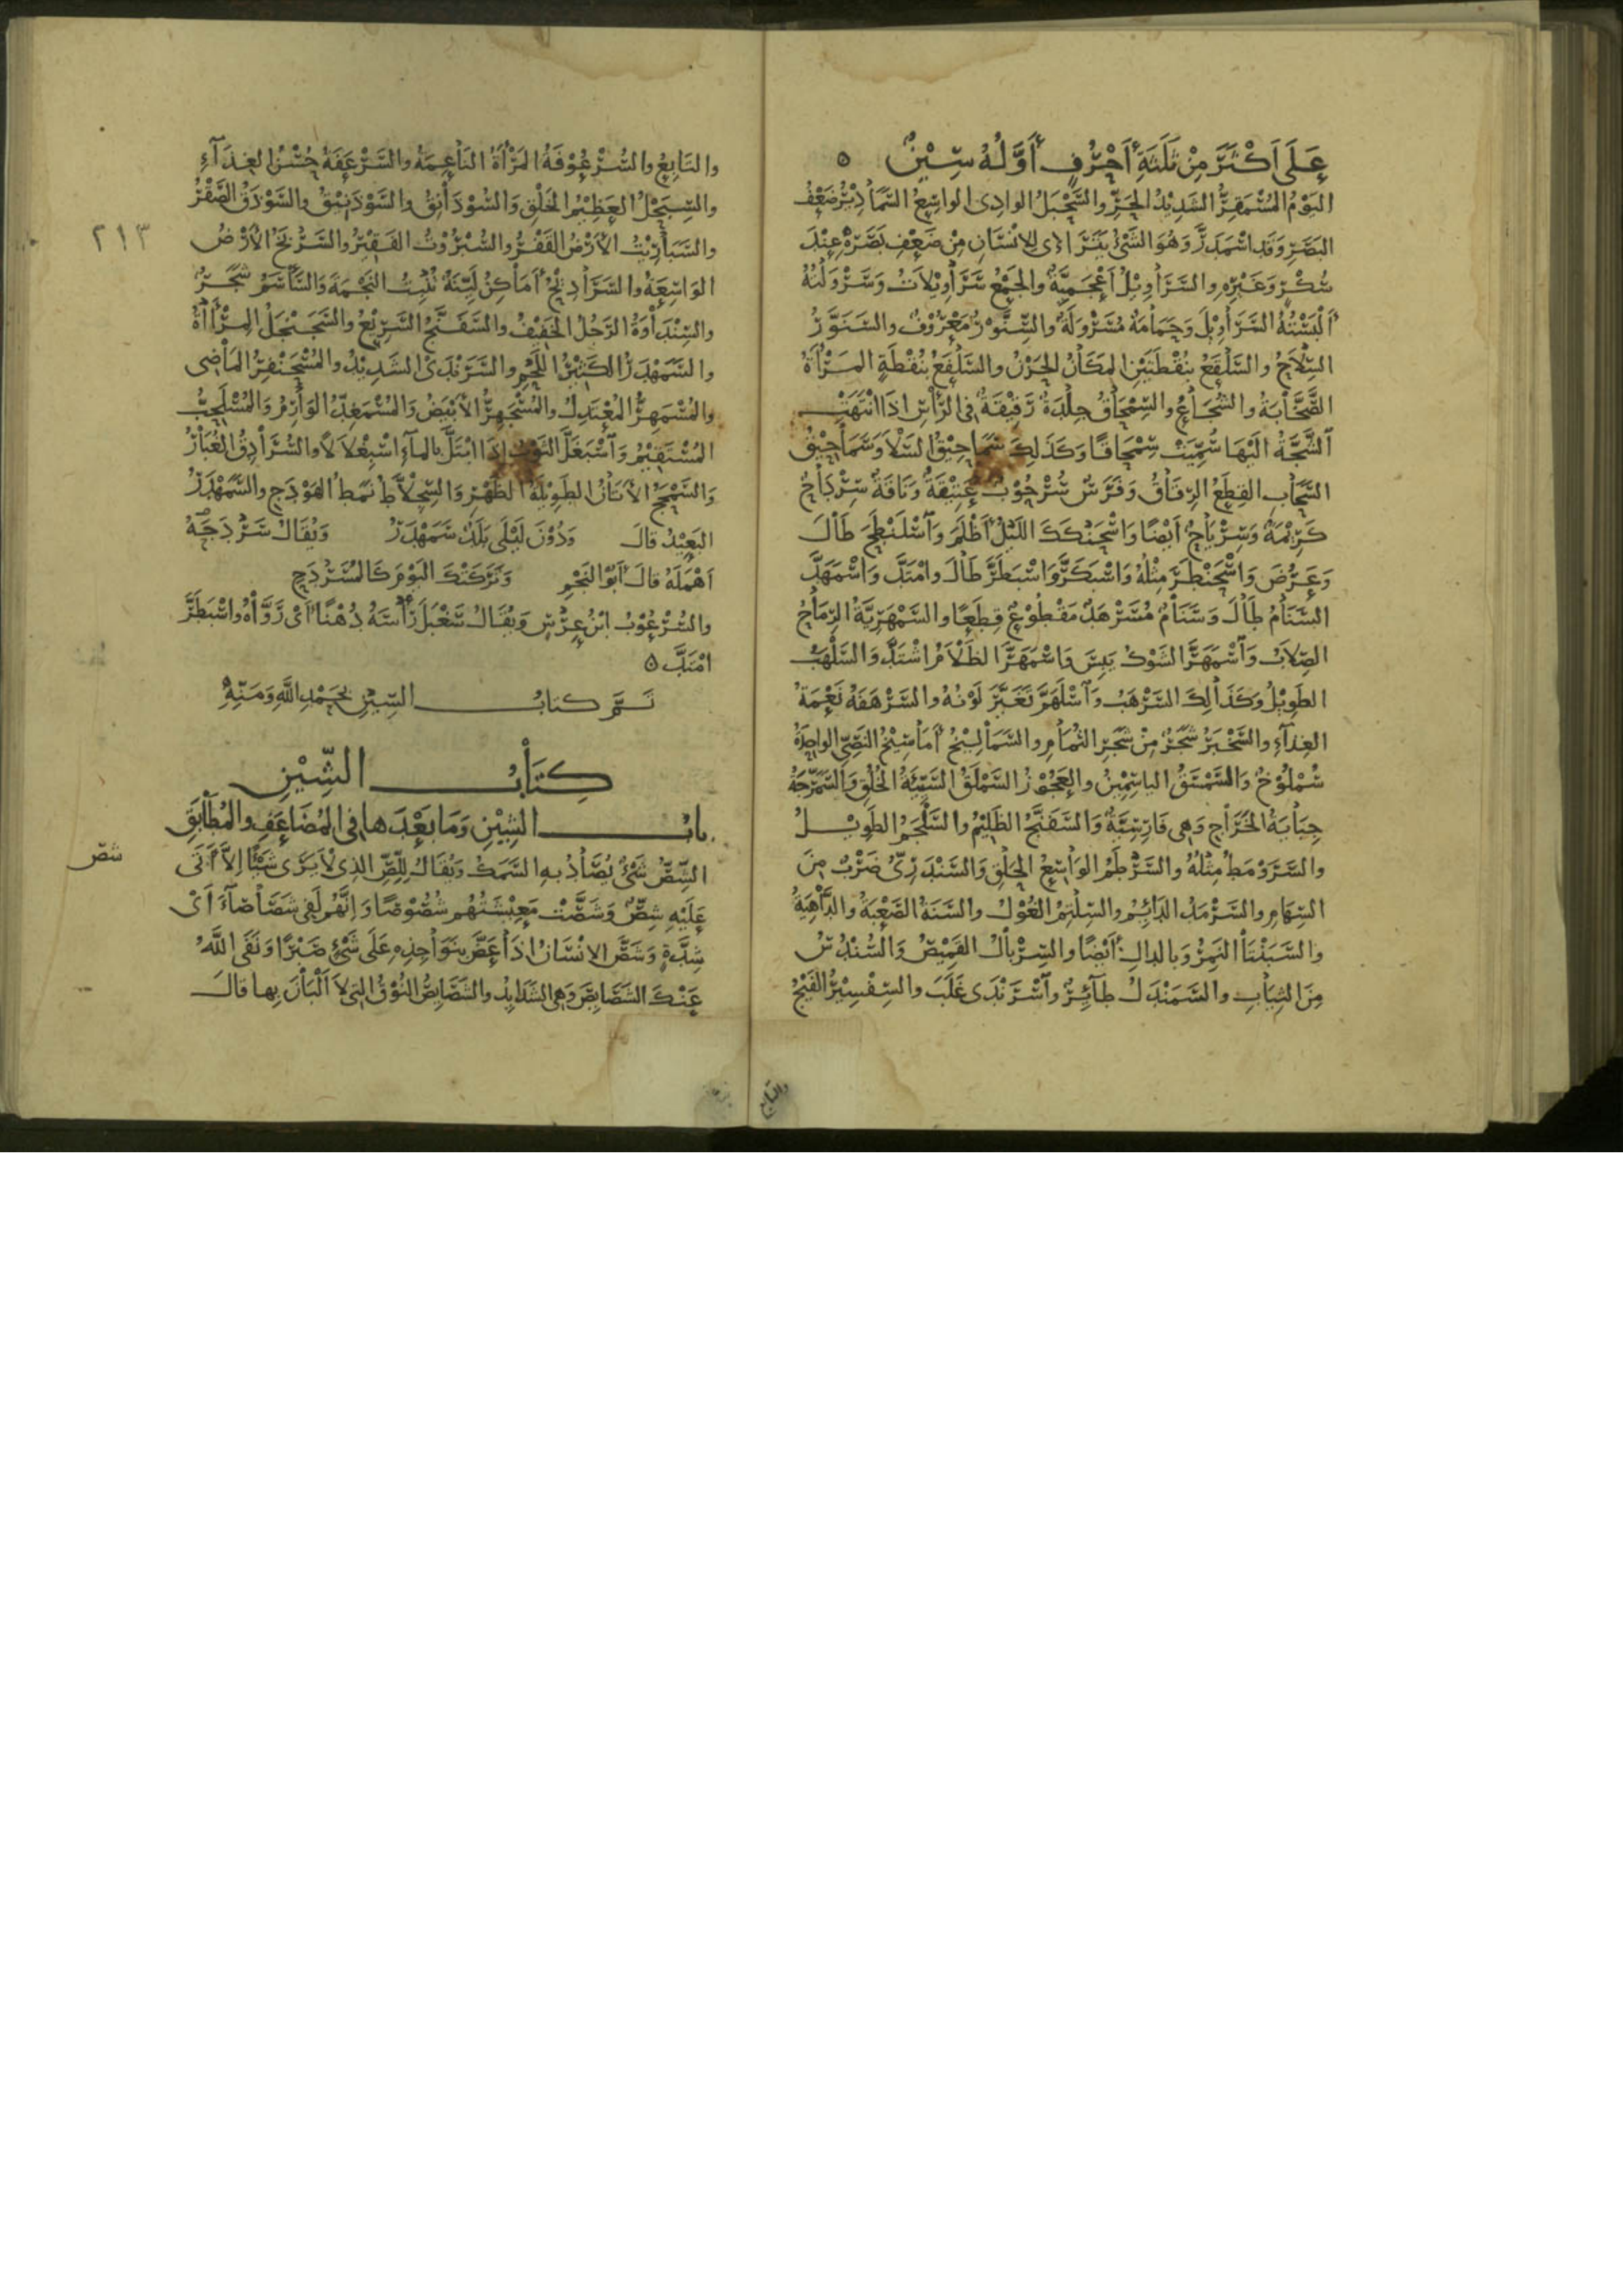 عَلَى أَكْثَرَ مِنْ ثَلَثَةِ أَحْرُفٍ أَوَّلُهُ سِيْنٌ ه
اليَوْمُ المُسْمَقِرُّ الشَدِيْدُ الحَرِّ والسَّحْبَلُ الوادِى الواسِعُ السَّمَادِيْرُ ضَعْفُ
البَصَرِ وَقَدِ اسْمَدَرَّ وَهُوَ الشَّىْءُ يَتَرَاءَى لِلإنْسَانِ مِنْ ضَعْفِ بَصَرِهِ عِنْدَ
سُكْرٍ وَغَيْرِهِ والسَّرَاوِيْلُ أَعْجَمِيَّةٌ والجَمْعُ سَرَاوِيْلاَتٌ وَسَرْوَلْتُهُ
أَلْبَسْتُهُ السَّرَاوِيْلَ وَحَمَامَةٌ مُسَرْوَلَةٌ والسِّنَّوْرُ مَعْرُوْفٌ والسَّنَوَّرُ
السِّلاَحُ والسَّلْقَعُ بِنُقْطَتَيْنِ المَكَانُ الحَزْنُ والسَّلْفَعُ بِنُقْطَةٍ المَرْأَةُ
الصَّخَّابَةُ والشُجَاعُ والسِّمْحَاقُ جِلْدَةٌ رَقِيْقَةٌ فى الرَّأْسِ اذَا انْتَهَتِ
الشَّجَّةُ الَيْهَا سُمِّيَتْ سِمْحَاقًا وَكَذَلِكَ سَمَاحِيْقُ السَّلاَ وَسَمَاحِيْقُ
السَّحَابِ القِطَعُ الرِقَاقُ وَفَرَسٌ سُرْحُوْبٌ عَتِيْقَةٌ وَنَاقَةٌ سِرْدَاحٌ
كَرِيْمَةٌ وَسِرْيَاحٌ أَيْضًا وَاسْحَنْكَكَ اللَّيْلُ أَظْلَمَ وَاسْلَنْطَحَ طَالَ
وَعَرُضَ وَاسْحَنْطَرَ مِثْلُهُ وَاسْبَكَرَّ وَاسْبَطَرَّ طَالَ وامْتَدَّ وَاسْمَهَدَّ
السَّنَامُ طَالَ وَسَنَامٌ مُسَرْهَدٌ مَقْطُوْعٌ قِطَعًا والسَّمْهَرِيَّةُ الرِمَاحُ
الصِّلاَبُ وَاسْمَهَرَّ الشَوْكُ يَبِسَ وَاسْمَهَرَّ الظَّلاَمُ اشْتَدَّ وَالسَّلْهَبُ
الطَوِيْلُ وَكَذَالِكَ السَّرْهَبُ وَاسْلَهَمَّ تَغَيَّرَ لَوْنُهُ والسَّرْهَفَةُ نَعْمَةُ
الغِذَآءِ والسَّخْبَرُ شَجَرٌ مِنْ شَجَرِ الثُمَامِ والسَّمَالِيْخُ أَمَاسِيْخُ النَصِىِّ الواحِدَةُ
سُمْلُوْخٌ وَالسَّمْسَقُ الياسِمِيْنُ والعَجُوْزُ السَّمْلَقُ السَّيِّئَةُ الخُلُقِ وَالسَّمَرَّجَةُ
جِبَايَةُ الخَرَاجِ وَهِى فَارِسِيَّةٌ وَالسَّفَنَّجُ الظَلِيْمُ والسَّلْجَمُ الطَوِيْلُ
والسَّرَوْمَطُ مِثْلُهُ والسَّرْطَمُ الوَاسِعُ الحَلْقِ وَالسَّنْدَرِىُّ ضَرْبٌ مِنَ
السِّهَامِ والسَّرْمَدُ الدَائِمُ والسِلْتِمُ الغُوْلُ والسَّنَةُ الصَّعْبَةُ والدَّاهِيَةُ
والسَّبَنْتَا النَمِرُ وَبالدالِ أَيْضًا والسِرْبَالُ القَمِيْصُ وَالسُّنْدُسُ
مِنَ الثِيَابِ والسَّمَنْدَلُ طَآئِرٌ واسْرَنْدَى غَلَبَ والسِفْسِيْرُ الفَيْجُ
والتَابِعُ
والتَابِعُ والسُّرْعُوْفَةُ المَرْأَةُ النَاعِمَةُ والسَّرْعَفَةُ حُسْنُ الغِذَآءِ
والسِّبَحْلُ العَظِيْمُ الخَلْقِ وَالسُّوْذَانِقُ والسَّوْذَنِيْقُ والسَّوْذَقُ الصَّقْرُ
والسَّبَارِيْتُ الأَرْضُ القَفْرُ والسُّبْرُوْتُ الفَقِيْرُ والسَّرْبَخُ الأَرْضُ
٢١٣
الوَاسِعَةُ والسَّرَادِيْحُ أَمَاكِنُ لَيِّنَةٌ تُنْبِتُ النَجْمَةَ وَالسَّأْسَمُ شَجَرٌ
والسِّنْدَأْوَةُ الرَجُلُ الخَفِيْفُ والسَّفَنَّجُ السَّرِيْعُ والسَّجَنْجَلُ المِرْآةُ
والسَّمَهْدَرُ الكَثِيْرُ اللَحْمِ والسَّرَنْدَى الشَدِيْدُ والمُسْحَنْفِرُ المَاضِى
والمُسْمَهِرُّ المُعْتَدِلُ والمُسْجَهِرُّ الأَبْيَضُ وَالمُسْمَغِدُّ الوَارِمُ وَالمُسْلَحِبُّ
المُسْتَقِيْمُ وَاسْبَغَلَّ الثَوْبُ اذَا ابْتَلَّ بالمآءِ اسْبِغْلاَلاً والسُّرَادِقُ الغُبَارُ
وَالسَّمْحَجُ الأَتَانُ الطَوِيْلَةُ الظَهْرِ وَالسِّجِلاَّطُ نَمَطُ الهَوْدَجِ والسَّمَهْدَرُ
البَعِيْدُ قالَ وَدُوْنَ لَيْلَى بَلَدٌ سَمَهْدَرُ وَيُقَالُ سَرْدَجَهُ
أَهْمَلَهُ قالَ أَبُوْ النَجْمِ وَتَرَكَتْكَ اليَوْمَ كَالمُسَرْدَجِ
والسُّرْعُوْبُ ابْنُ عِرْسٍ وَيُقَالُ سَغْبَلَ رَأْسَهُ دُهْنًا أَىْ رَوَّاهُ واسْبَطَرَّ
امْتَدَّ ه
تَمَّ كتابُ السِّيْنِ بِحَمْدِ اللَّهِ وَمَنِّهِ
كِتَابُ الشِّيْنِ
بابُ الشِيْنِ وَمَا بَعْدَها فى المُضَاعَفِ والمُطَابَقِ
شصّ
الشِّصُّ شَىْءٌ يُصَادُ بِهِ السَّمَكُ وَيُقَالُ لِلِّصِّ الذِى لاَ يَرَى شَيْئًا إلاَّ أَتَى
عَلَيْهِ شِصٌّ وَشَصَّتْ مَعِيْشَتُهُمْ شُصُوْصًا وَإنَّهُمْ لَفِى شَصَاصَآءَ أَىْ
شِدَّةٍ وَشَصَّ الانْسَانُ اذَا عَضَّ بِنَوَاجِذِهِ عَلَى شَىْءٍ صَبْرًا وَنَفَى اللَّهُ
عَنْكَ الشَصَايِصَ وَهِى الشَدَايِدُ والشَصَايِصُ النُوْقُ التِى لاَ أَلْبَانَ بِها قالَ